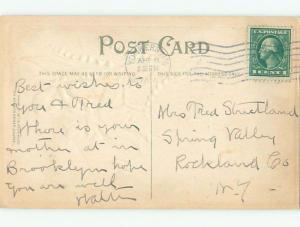 POST CARD
THIS SPACE MAY BE USED FOR WRITING
APR
U.S. POSTAGE
1 CENT 1
Best wishes to
you & Fred
Where is your
mother at in
Brooklyn hope
you are well
Mrs Fred Streetland
Spring Valley
Rockland Co
N.Y.